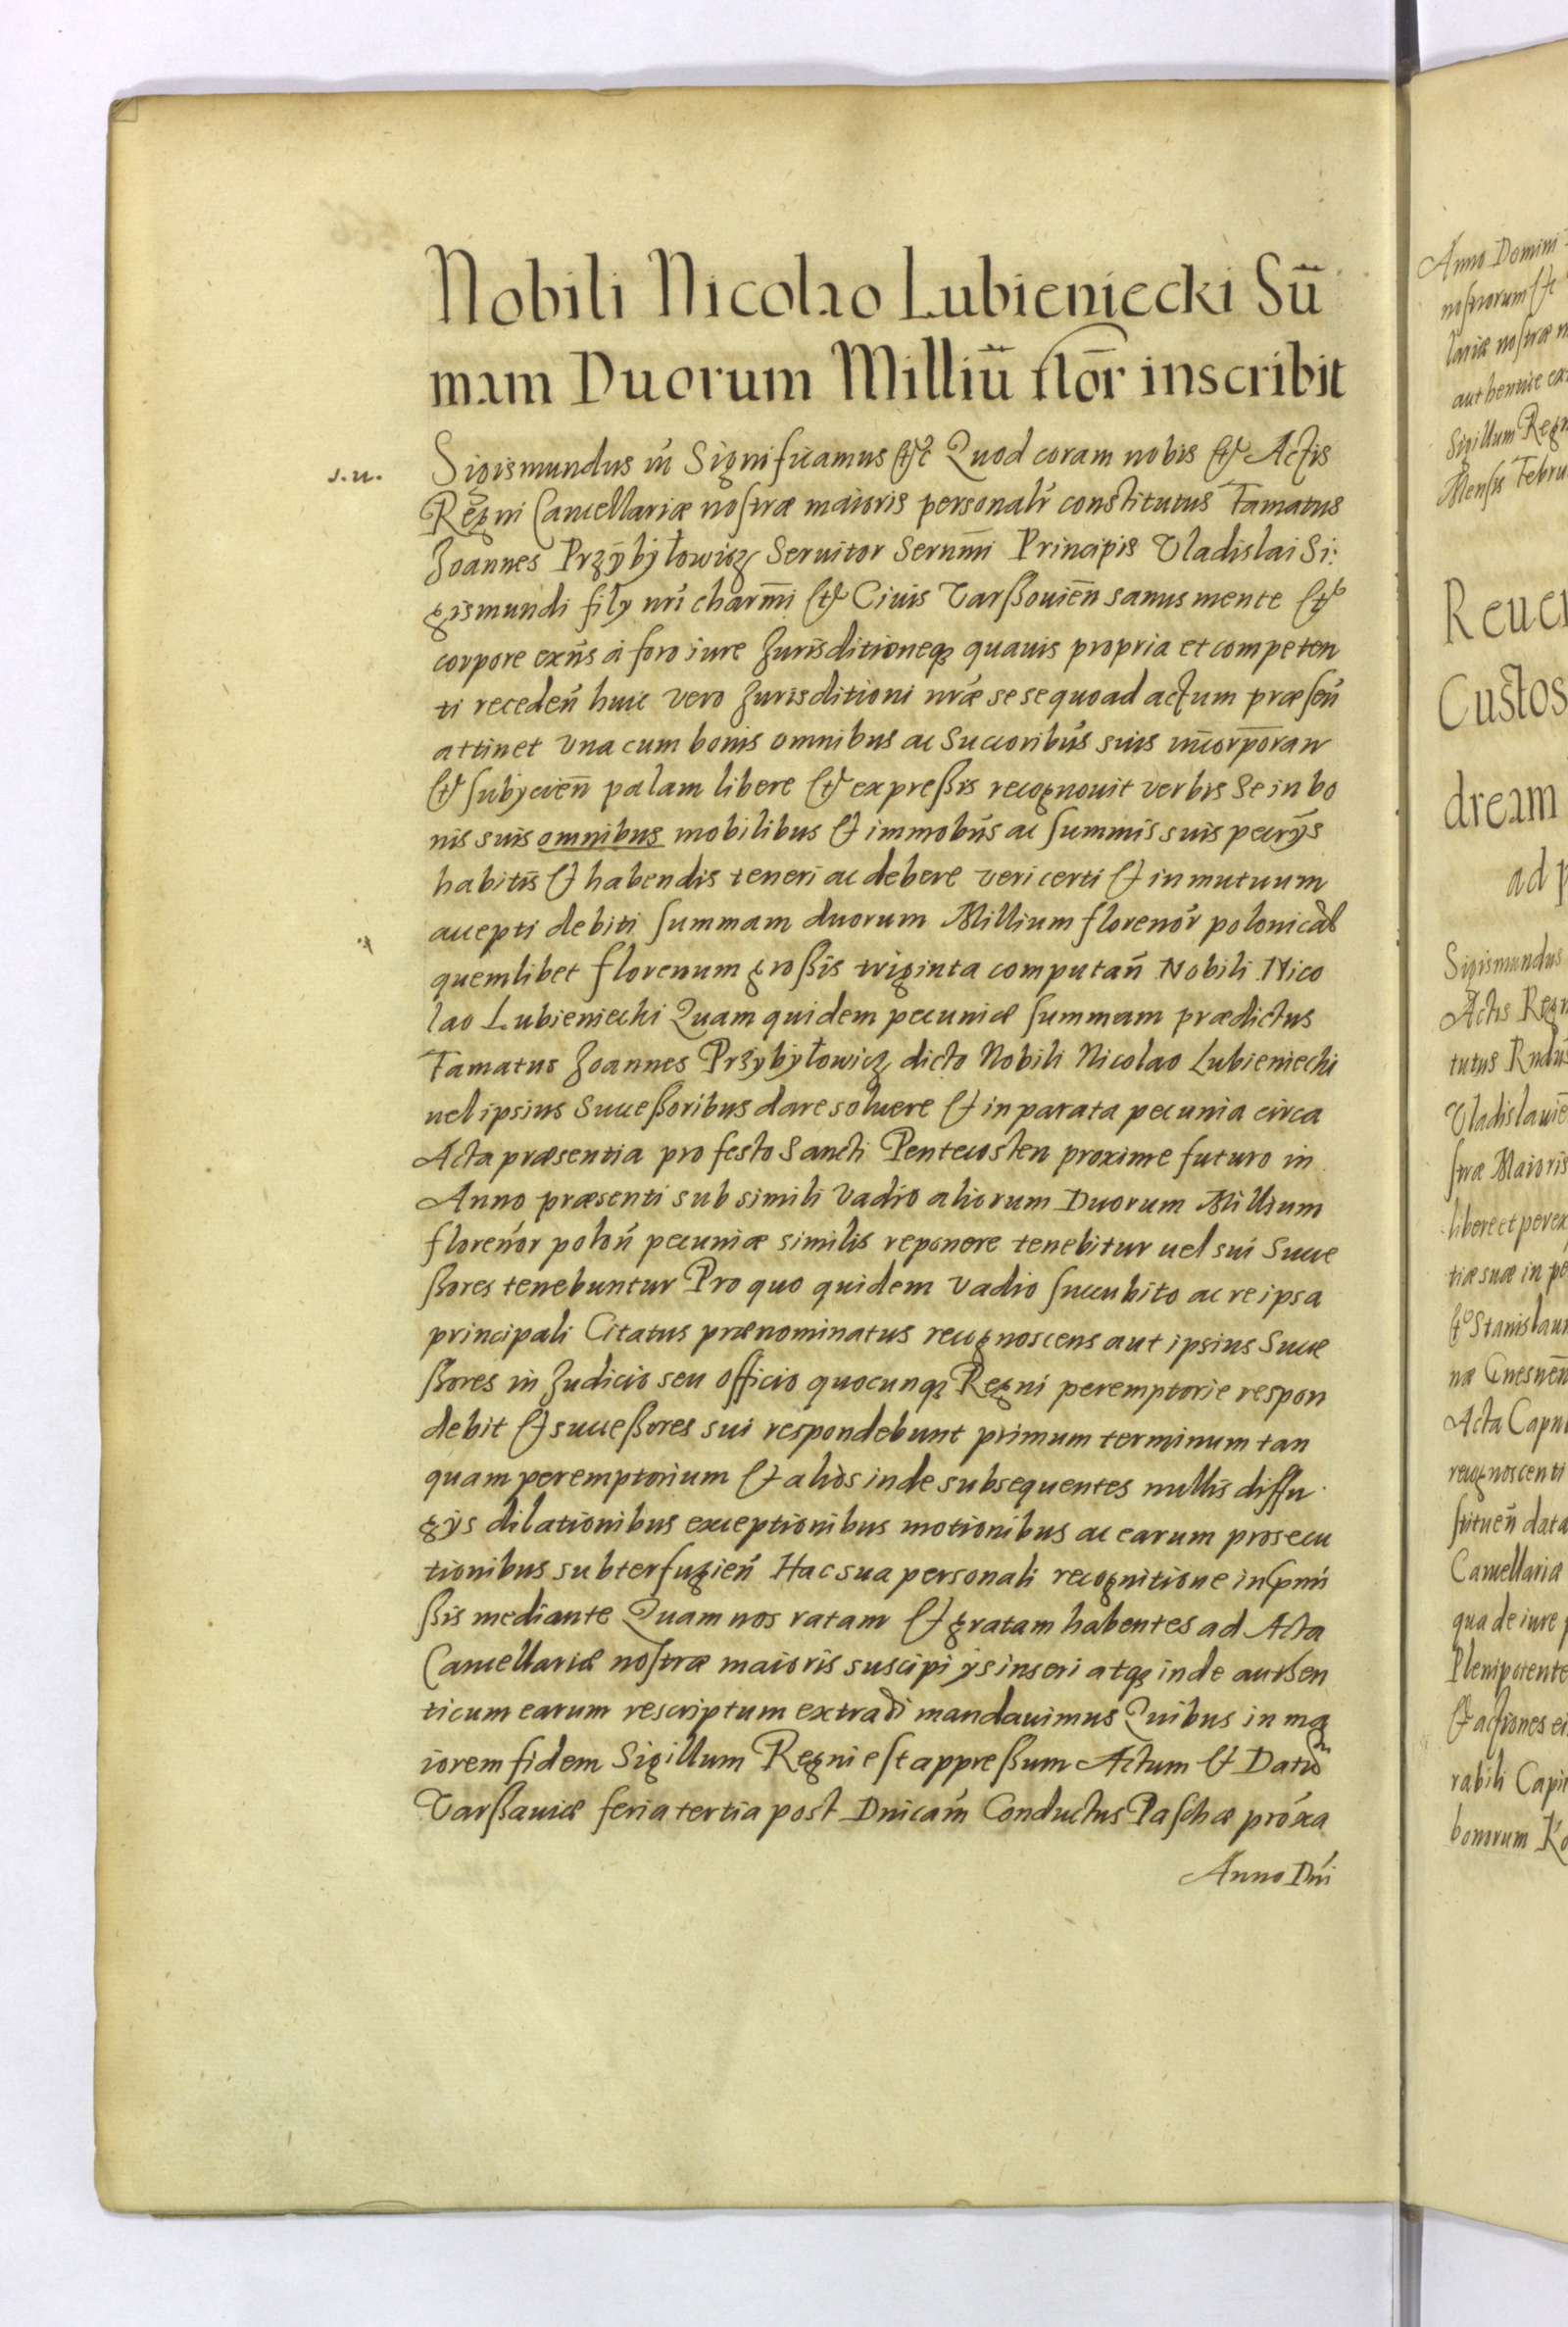 Nobili Nicolao Lubieniecki Sū
mam Duorum Milliū flor̄ inscribit
s.n.
Sigismundus ut Significamus etc Quod coram nobis et Actis
Regni Cancellariæ nostræ maioris personalr̄ constitutus Famatus
Joannes Przybyłowicz Seruitor Serenn̄mi Principis Vladislai Si:
gismundi filÿ nr̄i charm̄i et Ciuis Varßouien̄ sanus mente et
corpore exn̄s à foro iure Jurisditioneq3 quauis propria et competen
ti receden̄ huic vero Jurisditioni nr̄æ sese quoad actum præsen̄
attinet vna cum bonis omnibus ac Succoribus suis incorporan̄
et subÿcien̄ palam libere et expreßis recognouit verbis Se in bo
nis suis omnibus mobilibus et immobūs ac summis suis pecrÿs
habitis et habendis teneri ac debere veri certi et in mutuum
accepti debiti summam duorum Millium florenor̄ polonical
quemlibet florenum großis triginta computan̄ Nobili Nico
lao Lubieniecki Quam quidem pecuniæ summam prædictus
Famatus Joannes Przybyłowicz dicto Nobili Nicolao Lubieniecki
uel ipsius Succeßoribus dare soluere et in parata pecunia circa
Acta præsentia pro festo Sancti Pentecosten proxime futuro in
Anno præsenti sub simili Vadio aliorum Duorum Millium
florenor̄ polon̄ pecuniæ similis reponere tenebitur uel sui Succe
ßores tenebuntur Pro quo quidem Vadio succubito ac re ipsa
principali Citatus prænominatus recognoscens aut ipsius Succe
ßores in Judicio seu officio quocunq3 Regni peremptorie respon
debit et succeßores sui respondebunt primum terminum tan
quam peremptorium et alios inde subsequentes nullis diffu
gÿs dilationibus exceptionibus motionibus ac earum prosecu
tionibus subterfugien̄ Hac sua personali recognitione in p̄mi
ßis mediante Quam nos ratam et gratam habentes ad Acta
Cancellariæ nostræ maioris suscipi ÿs inseri atq3 inde authen
ticum earum rescriptum extradi mandauimus Quibus in ma
iorem fidem Sigillum Regni est appreßum Actum et Datū
Varßauiæ feria tertia post Dn̄icam Conductus Paschæ pro᷉xa
Anno Dn̄i
Anno Domini
nostrorum etc
lariæ nostræ
authentice
Sigillum Regn
Mensis Febru
Reuer
Custos
dream
ad p
Sigismundus
Actis Regn
tutus Rndūs
Vladislauien̄
stræ Maioris
libere et per ex
tiæ suæ in pe
et Stanislaum
næ Gnesnen̄
Acta Capit
recognoscenti
stituen̄ data
Cancellariæ
qua de iure p
Plenipotente
et actiones ei
rabili Capit
bonorum Ko